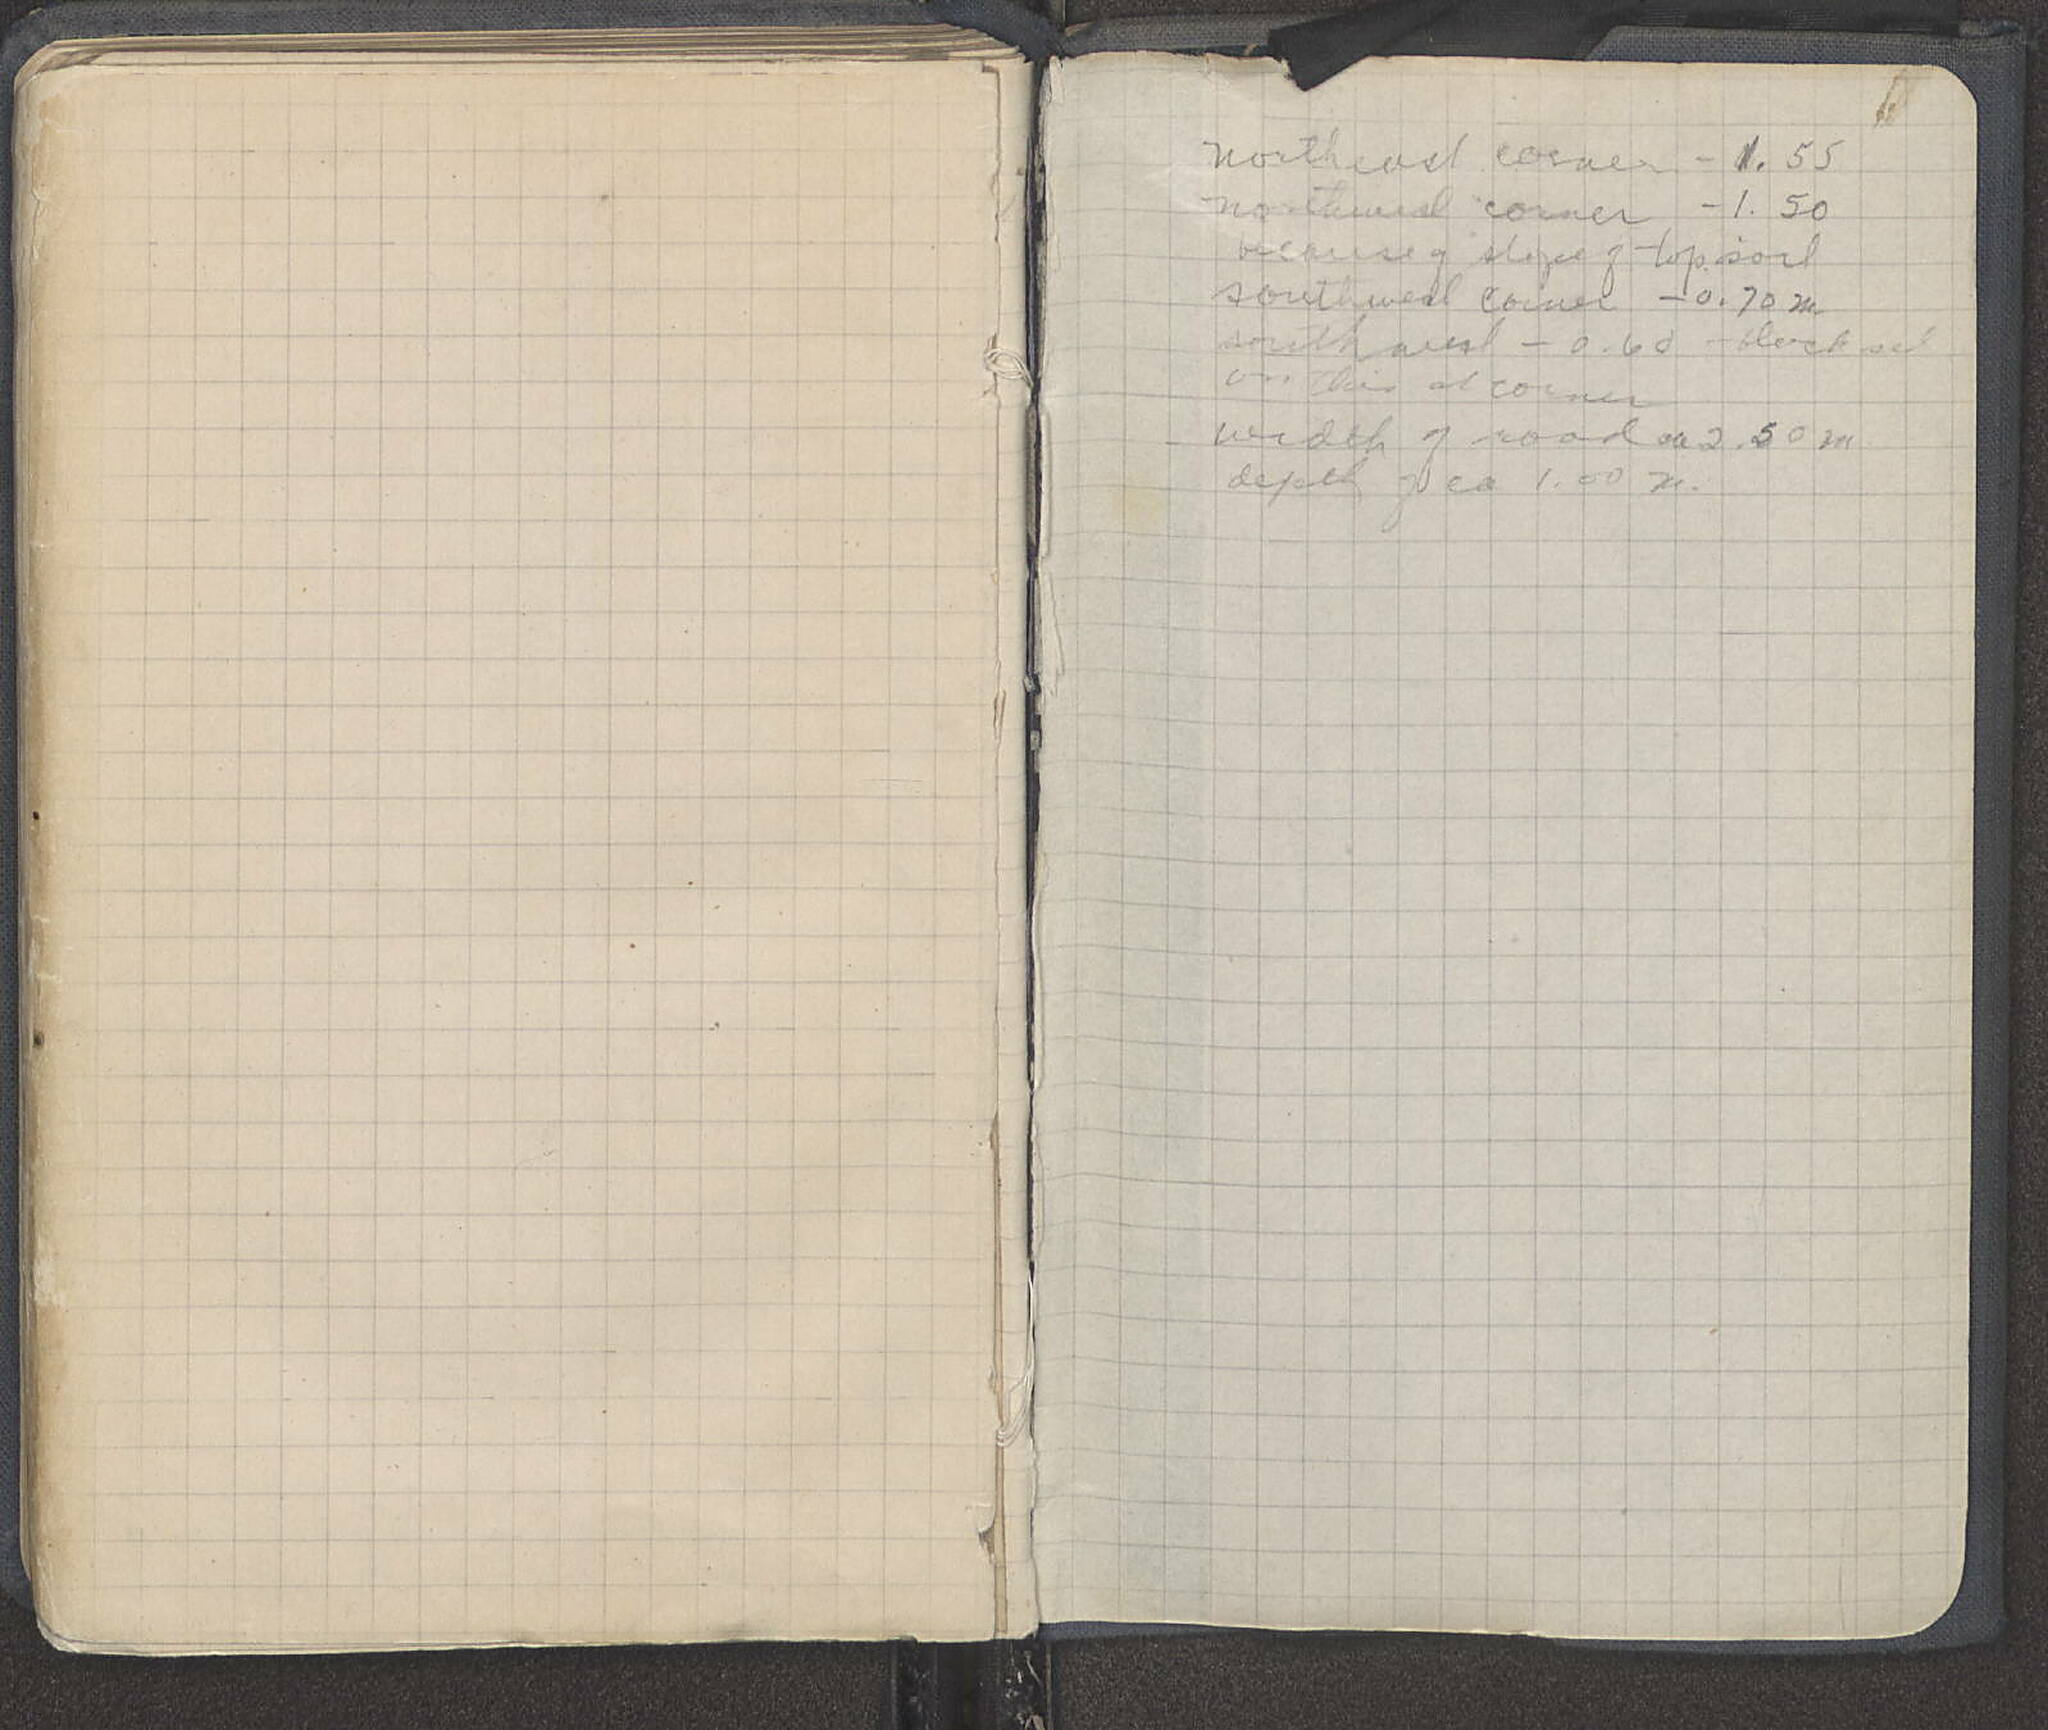 northeast corner - 1.55
northwest corner - 1.50
because of slope of top soil
southwest corner - 0.70 m
southwest - 0.60 - block set
on this at corner
width of road ca 2.50 m
depth of ca 1.00 m.